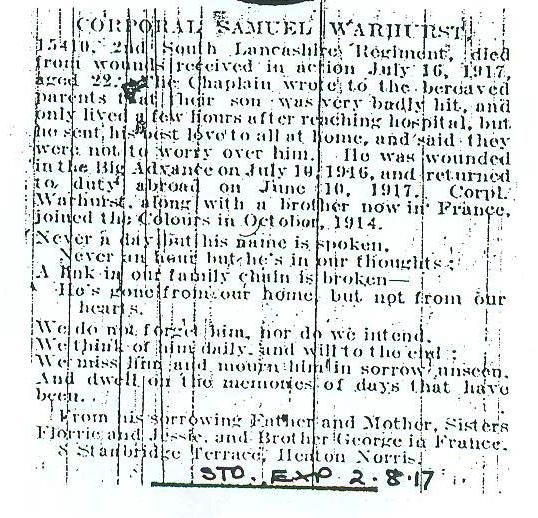 CORPORAL SAMUEL WARHURST
15410, 2nd South Lancashire Regiment, died
from wounds received in action July 16, 1917,
aged 22. The Chaplain wrote to the bereaved
parents that their son was very badly hit, and
only lived a few hours after reaching hospital, but
he sent his best love to all at home, and said they
were not to worry over him. He was wounded
in the Big Advance on July 10, 1916, and returned
to duty abroad on June 10, 1917. Corpl.
Warhurst, along with a brother now in France,
joined the Colours in October, 1914.
Never a day but his name is spoken,
Never an hour but he's in our thoughts;
A link in our family chain is broken—
He's gone from our home, but not from our
hearts.
We do not forget him, nor do we intend,
We think of him daily, and will to the end;
We miss him and mourn him in sorrow unseen,
And dwell on the memories of days that have
been.
From his sorrowing Father and Mother, Sisters
Florrie and Jessie, and Brother George in France.
8 Stanbridge Terrace, Heaton Norris.
STO. EXP 2.8.17